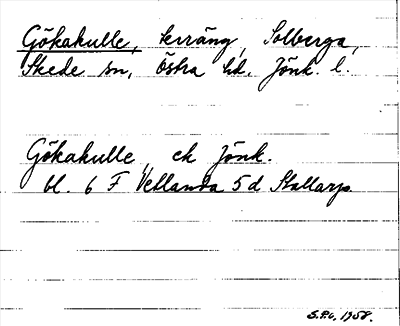 Gökakulle, terräng, Solberga,
Skede sn, Östra hd. Jönk. l.
Gökakulle, ek Jönk.
bl. 6 F Vetlanda 5 d Stallarp.
1958.